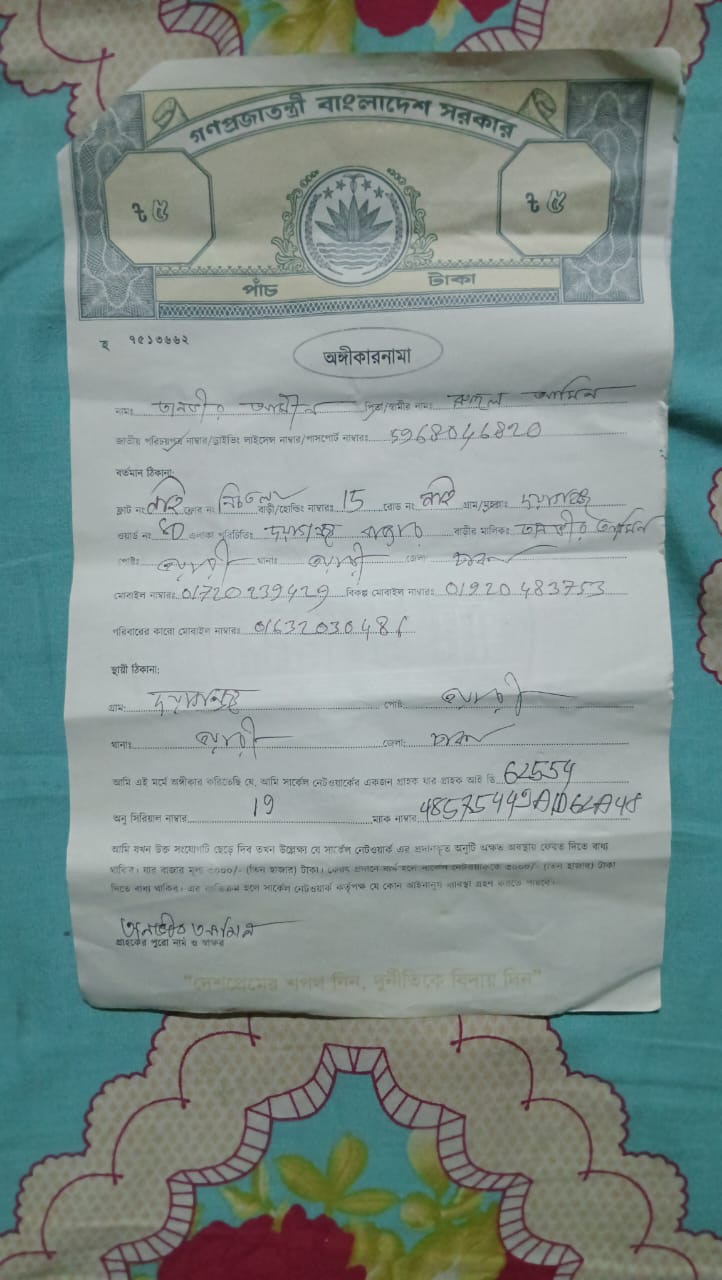 গণপ্রজাতন্ত্রী বাংলাদেশ সরকার
৳ ৫ ৳ ৫
পাঁচ টাকা
হ ৭৫১৩৬৬২
অঙ্গীকারনামা
নামঃ তানভীর আমিন পিতা/স্বামীর নামঃ রুহুল আমিন
জাতীয় পরিচয়পত্র নাম্বার/ড্রাইভিং লাইসেন্স নাম্বার/পাসপোর্ট নাম্বারঃ 5968046820
বর্তমান ঠিকানা:
ফ্লাট নং নাই ফ্লোর নং নিচতলা বাড়ী/হোল্ডিং নাম্বারঃ 15 রোড নং নাই গ্রাম/মহল্লাঃ
ওয়ার্ড নং এলাকা পরিচিতিঃ বাজার বাড়ীর মালিকঃ তানভীর আমিন
পোষ্টঃ থানাঃ জেলা ঢাকা
মোবাইল নাম্বারঃ 01720239429 বিকল্প মোবাইল নাম্বারঃ 01920483753
পরিবারের কারো মোবাইল নাম্বারঃ
স্থায়ী ঠিকানা:
গ্রাম: পোষ্ট:
থানাঃ জেলা: ঢাকা
আমি এই মর্মে অঙ্গীকার করিতেছি যে, আমি সার্কেল নেটওয়ার্কের একজন গ্রাহক যার গ্রাহক আই ডি 62554
অনু সিরিয়াল নাম্বার 19 ম্যাক নাম্বার
আমি যখন উক্ত সংযোগটি ছেড়ে দিব তখন উল্লেখ্য যে সার্কেল নেটওয়ার্ক এর প্রদানকৃত অনুটি অক্ষত অবস্থায় ফেরত দিতে বাধ্য
থাকিব। যার বাজার মূল্য ৩০০০/- (তিন হাজার) টাকা। ফেরৎ প্রদানে ব্যর্থ হলে সার্কেল নেটওয়ার্ককে ৩০০০/- (তিন হাজার) টাকা
দিতে বাধ্য থাকিব। এর ব্যতিক্রম হলে সার্কেল নেটওয়ার্ক কর্তৃপক্ষ যে কোন আইনানুগ ব্যবস্থা গ্রহণ করতে পারবে।
তানভীর আমিন
গ্রাহকের পুরো নাম ও স্বাক্ষর
“দেশপ্রেমের শপথ নিন, দুর্নীতিকে বিদায় দিন”